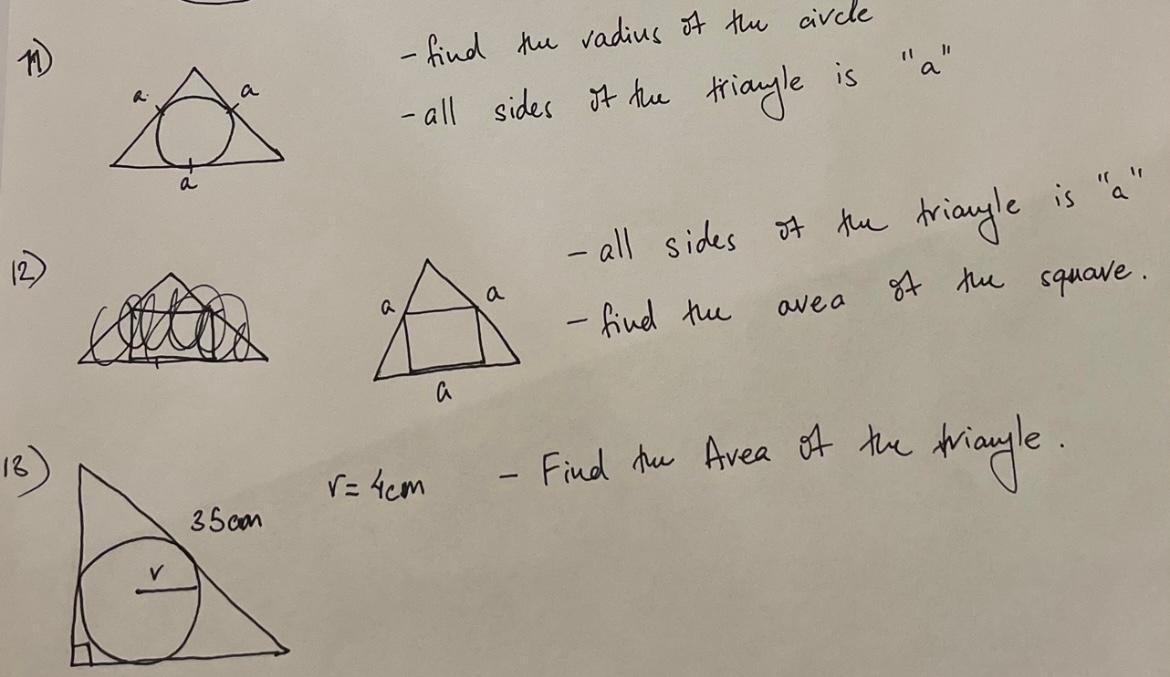 11)
- find the radius of the circle
- all sides of the triangle is "a"
a a
a
12)
- all sides of the triangle is "a"
- find the area of the square.
a a
a
13)
r = 4cm - Find the Area of the triangle.
35cm
r